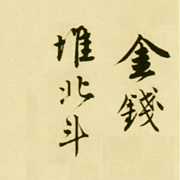 金錢
堆北斗